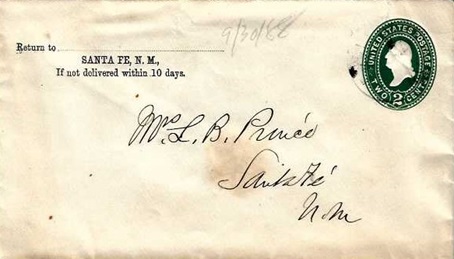 9/30/88
Return to
SANTA FE, N. M.,
If not delivered within 10 days.
UNITED STATES POSTAGE
TWO 2 CENTS
Mrs L. B. Prince
Santa Fé
N. M